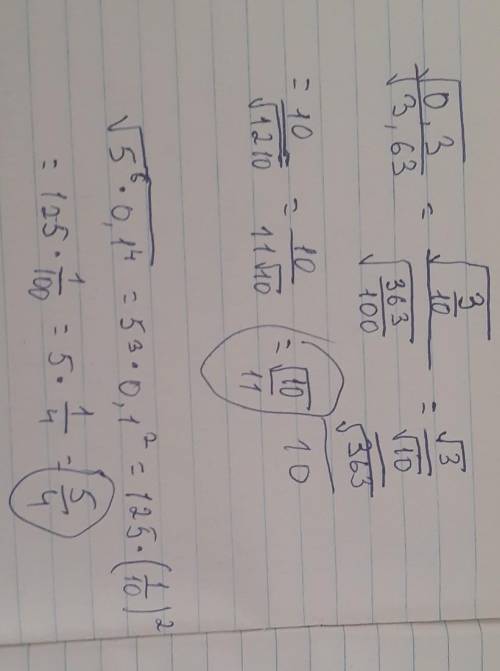 √0,3 / √3,63 = √(3/10) / √(363/100) = (√3/√10) / (√363/10)
= 10/√1210 = 10/(11√10) = √10/11
√(5⁶ · 0,1⁴) = 5³ · 0,1² = 125 · (1/10)²
= 125 · 1/100 = 5 · 1/4 = 5/4